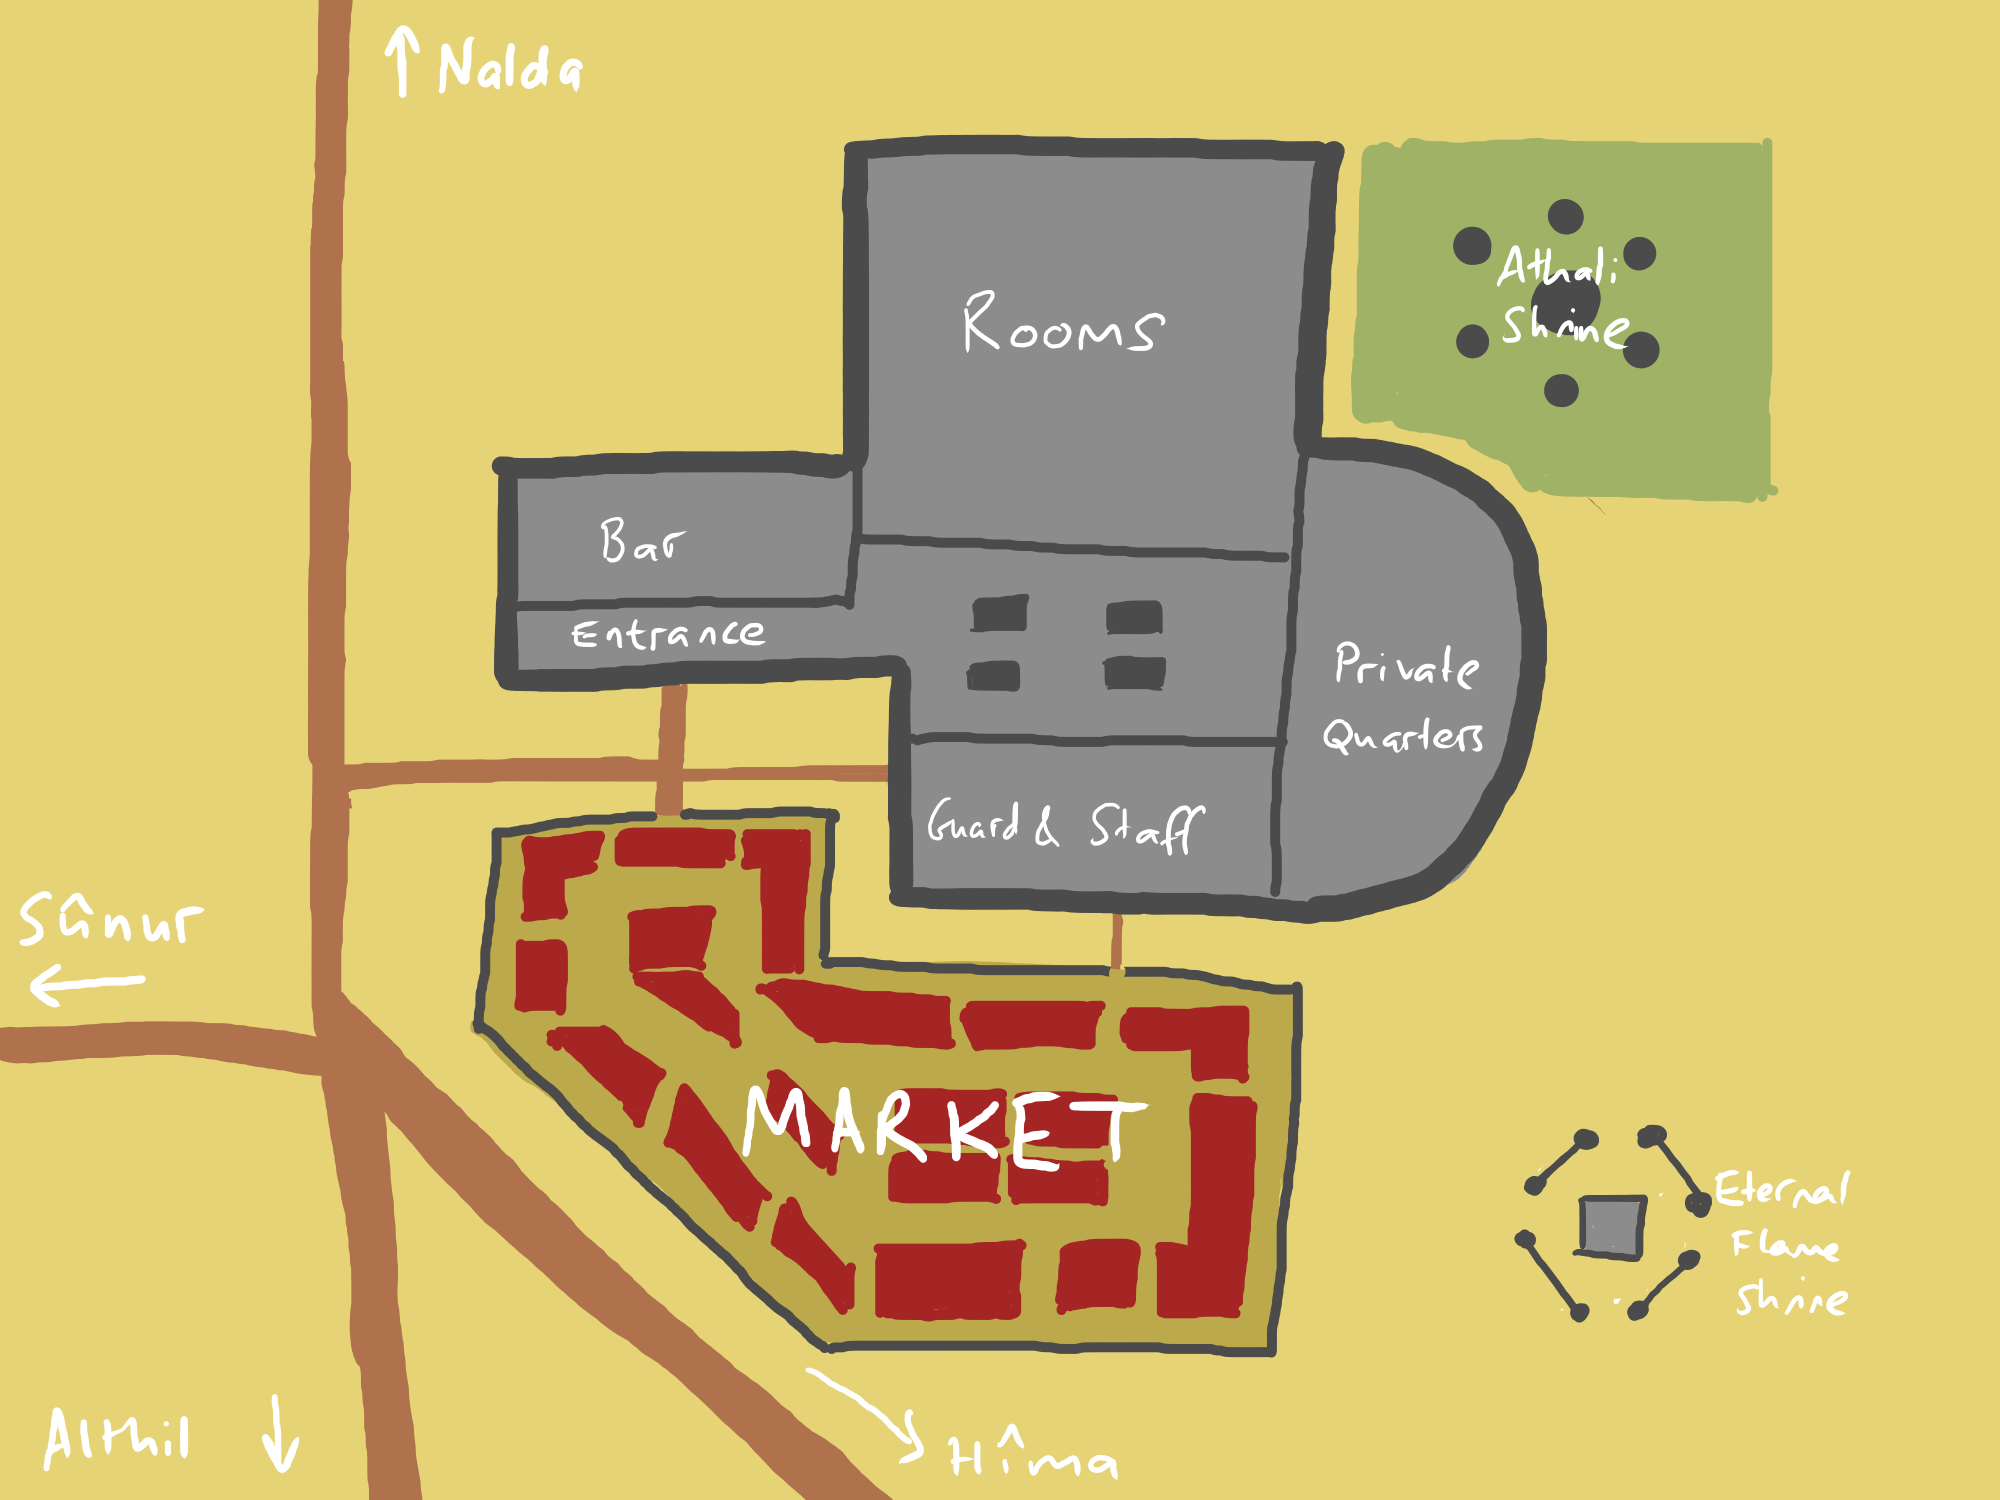 Nalda
Rooms
Athali
Shrine
Bar
Entrance
Private
Quarters
Guard & Staff
Sûnur
MARKET
Eternal
Flame
Shrine
Althil
Hîma